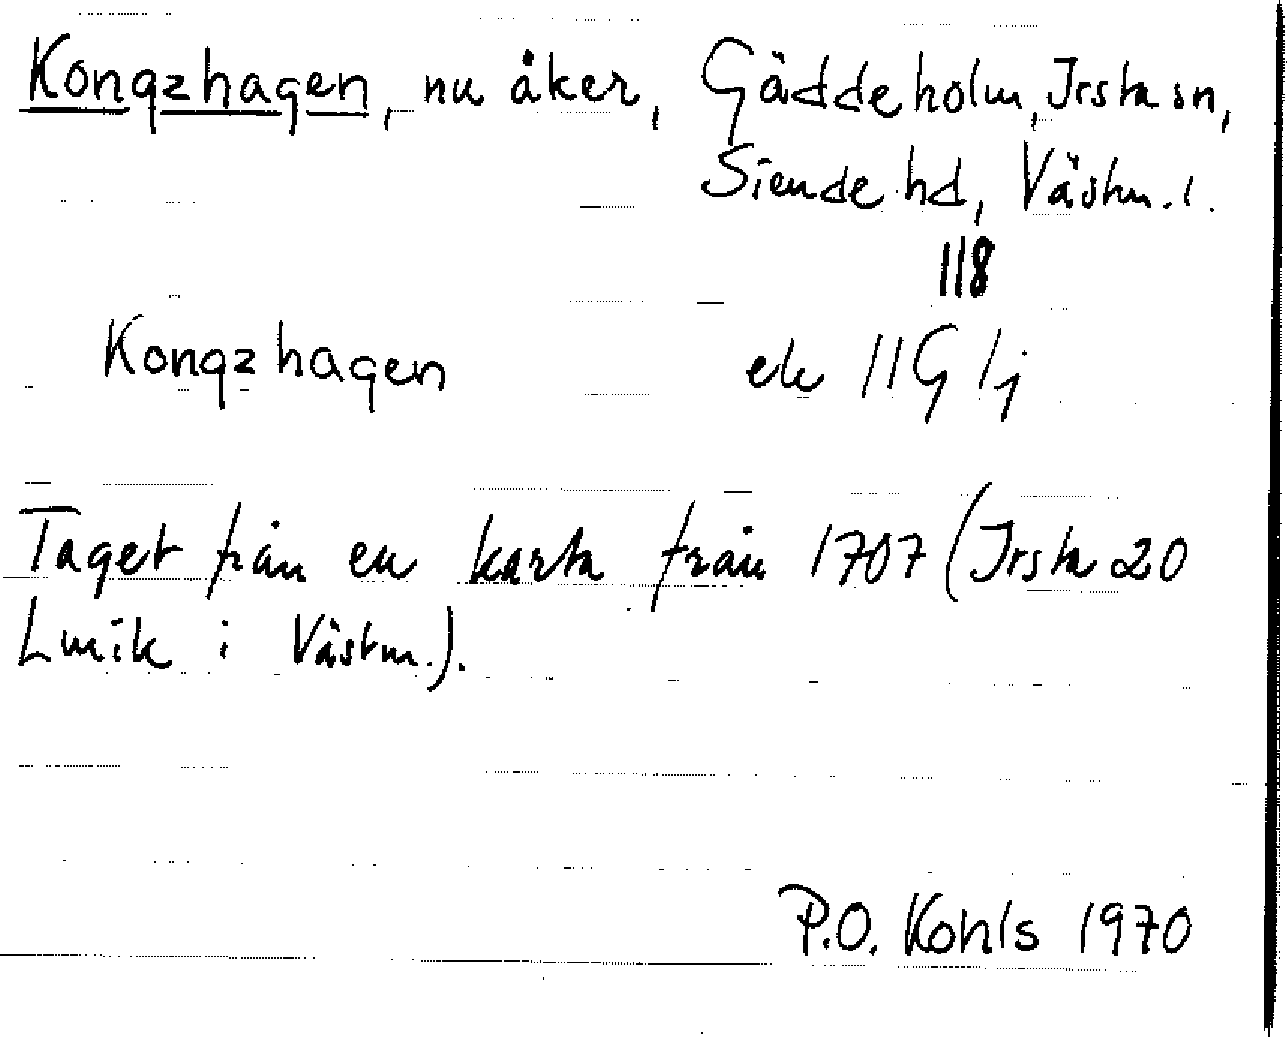 Kongzhagen, nu åker, Gäddeholm, Irsta sn,
Siende hd, Västm. l.
118
Kongzhagen ek 11G 1j
Taget från en karta från 1707 (Irsta 20
Lmik i Västm.).
P.O. Kohls 1970